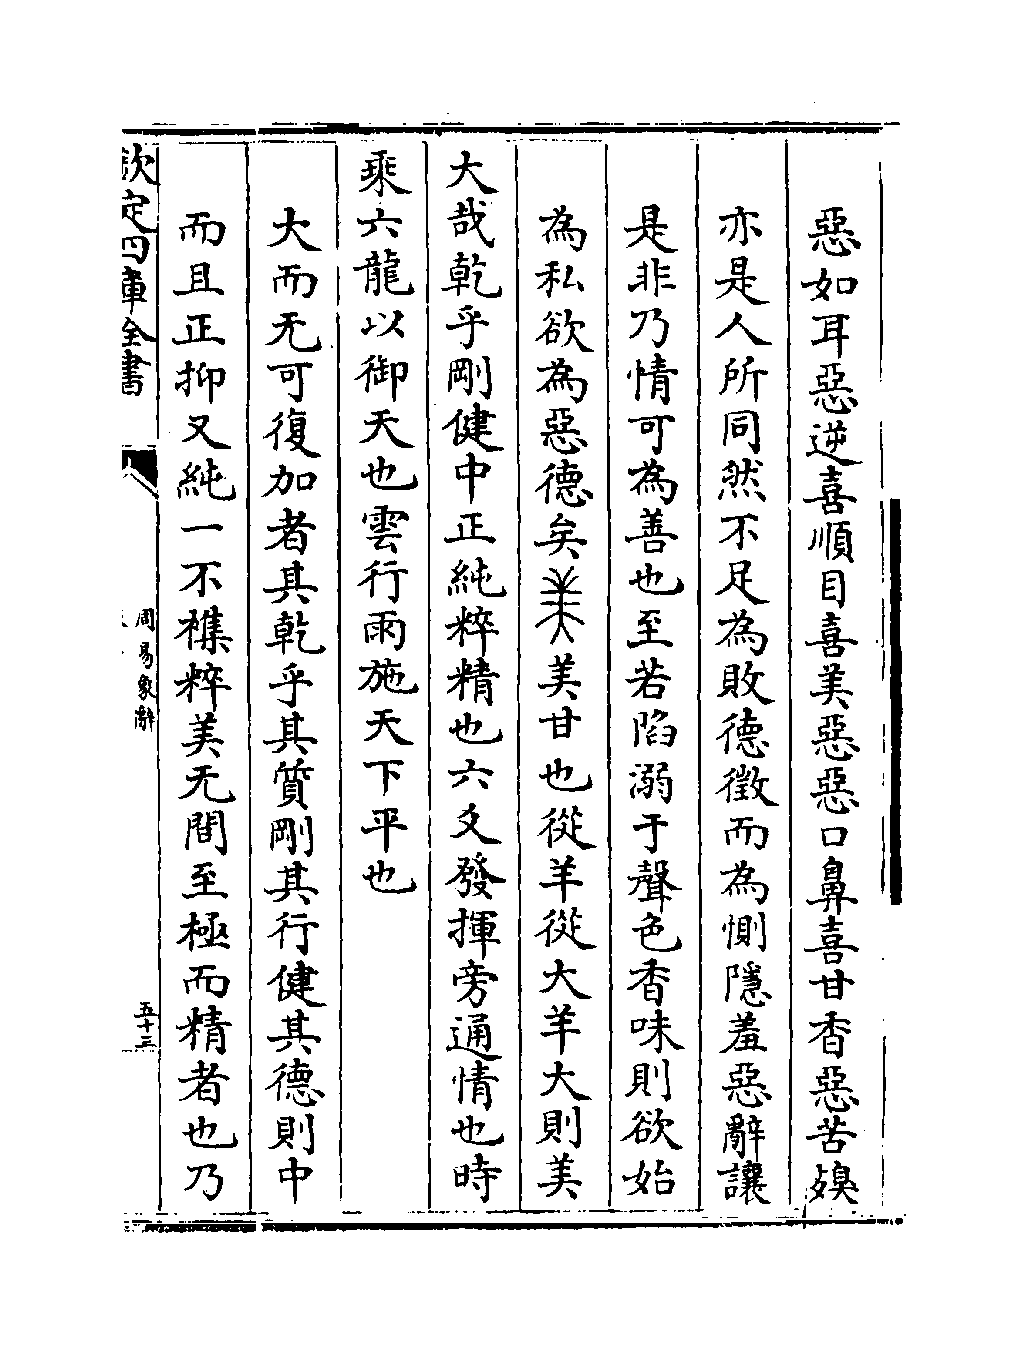 惡如耳惡逆喜順目喜美惡惡口鼻喜甘香惡苦㱙
亦是人所同然不足為敗德徵而為惻隱羞惡辭讓
是非乃情可為善也至若陷溺于聲色香味則欲始
為私欲為惡德矣美甘也從羊從大羊大則美
大哉乾乎剛健中正純粹精也六爻發揮旁通情也時
乘六龍以御天也雲行雨施天下平也
大而无可復加者其乾乎其質剛其行健其德則中
而且正抑又純一不襍粹美无間至極而精者也乃
欽定四庫全書
周易象辭
五十三